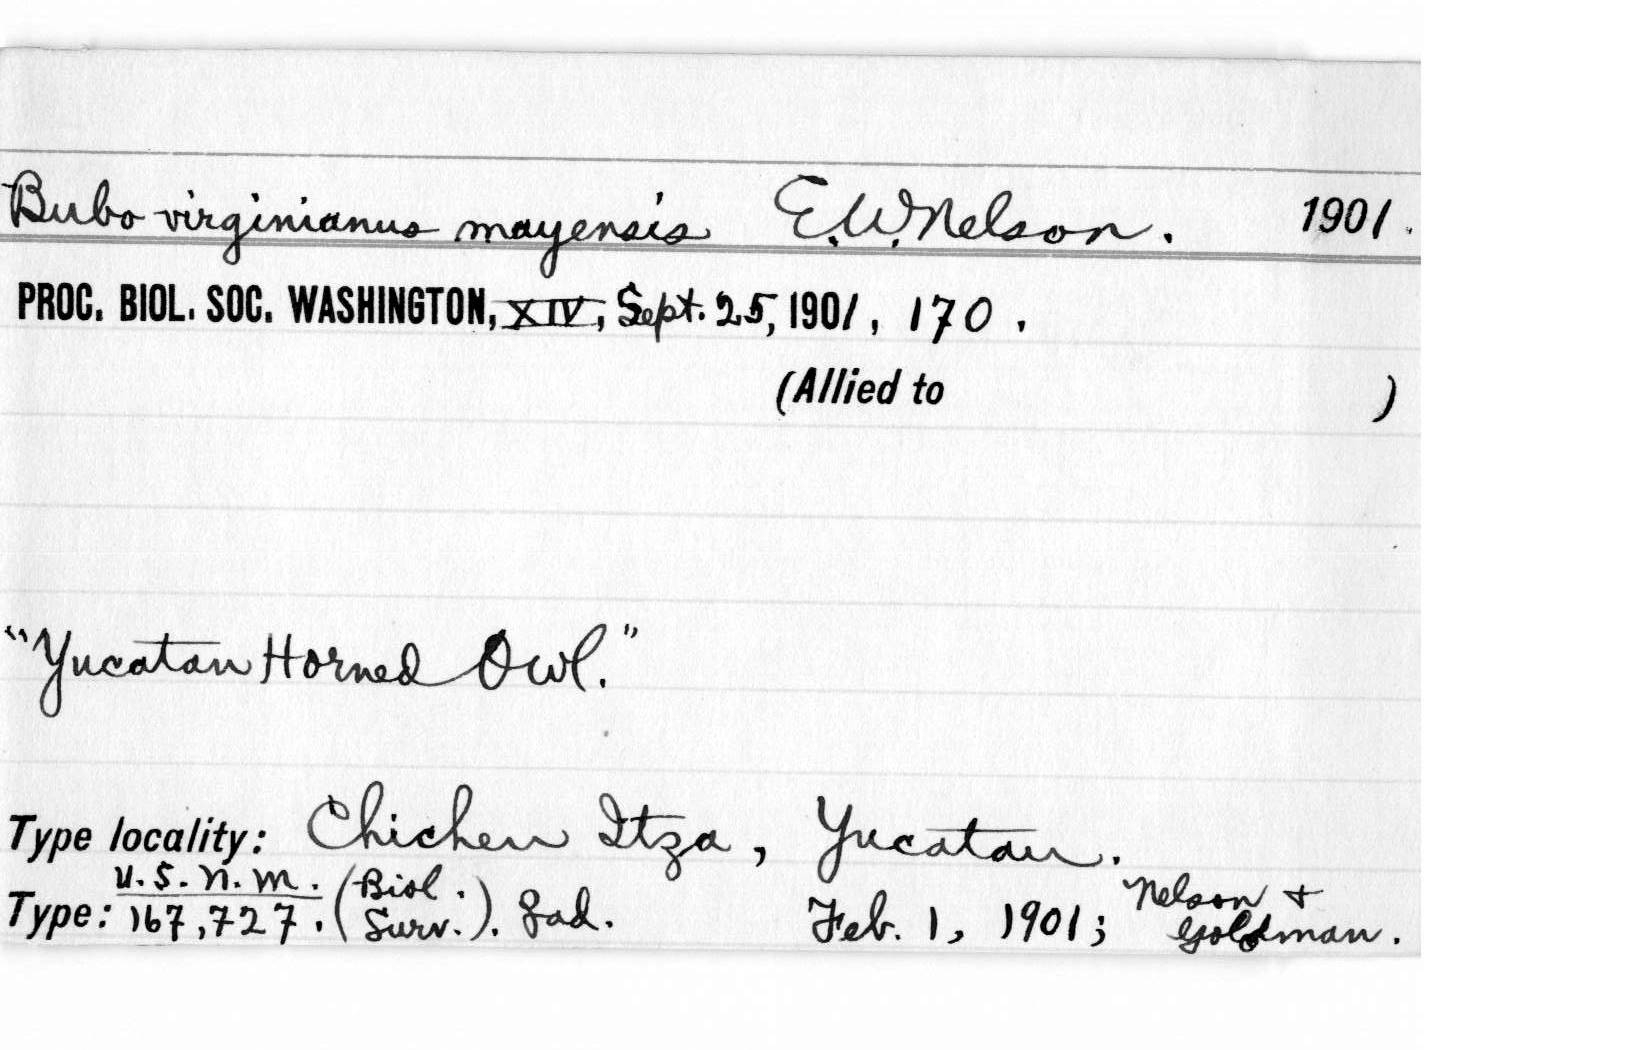 Bubo virginianus mayensis E.W. Nelson. 1901.
PROC. BIOL. SOC. WASHINGTON, XIV, Sept. 25, 1901, 170.
(Allied to )
"Yucatan Horned Owl."
Type locality: Chichen Itza, Yucatan.
U.S.N.M. (Biol. Nelson +
Type: 167,727. Surv.). ad. Feb. 1, 1901; Goldman.